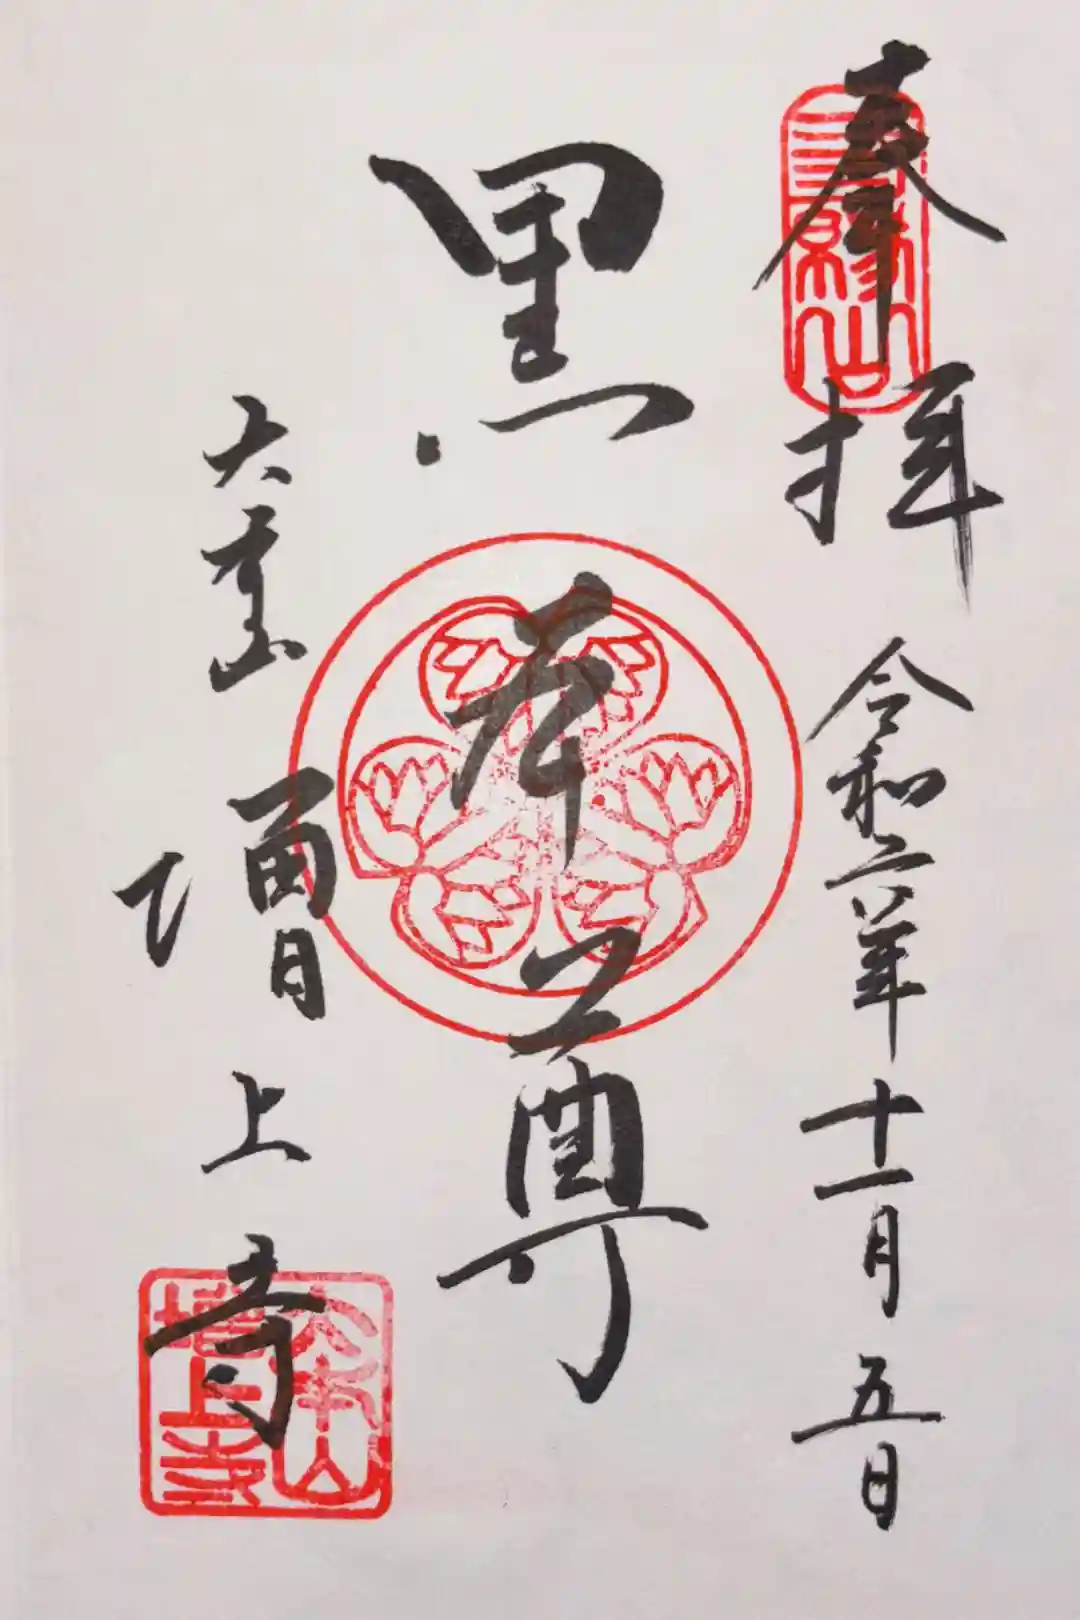 奉拝
三縁山
令和二年十一月五日
黒本尊
大本山
増上寺
大本山
増上寺